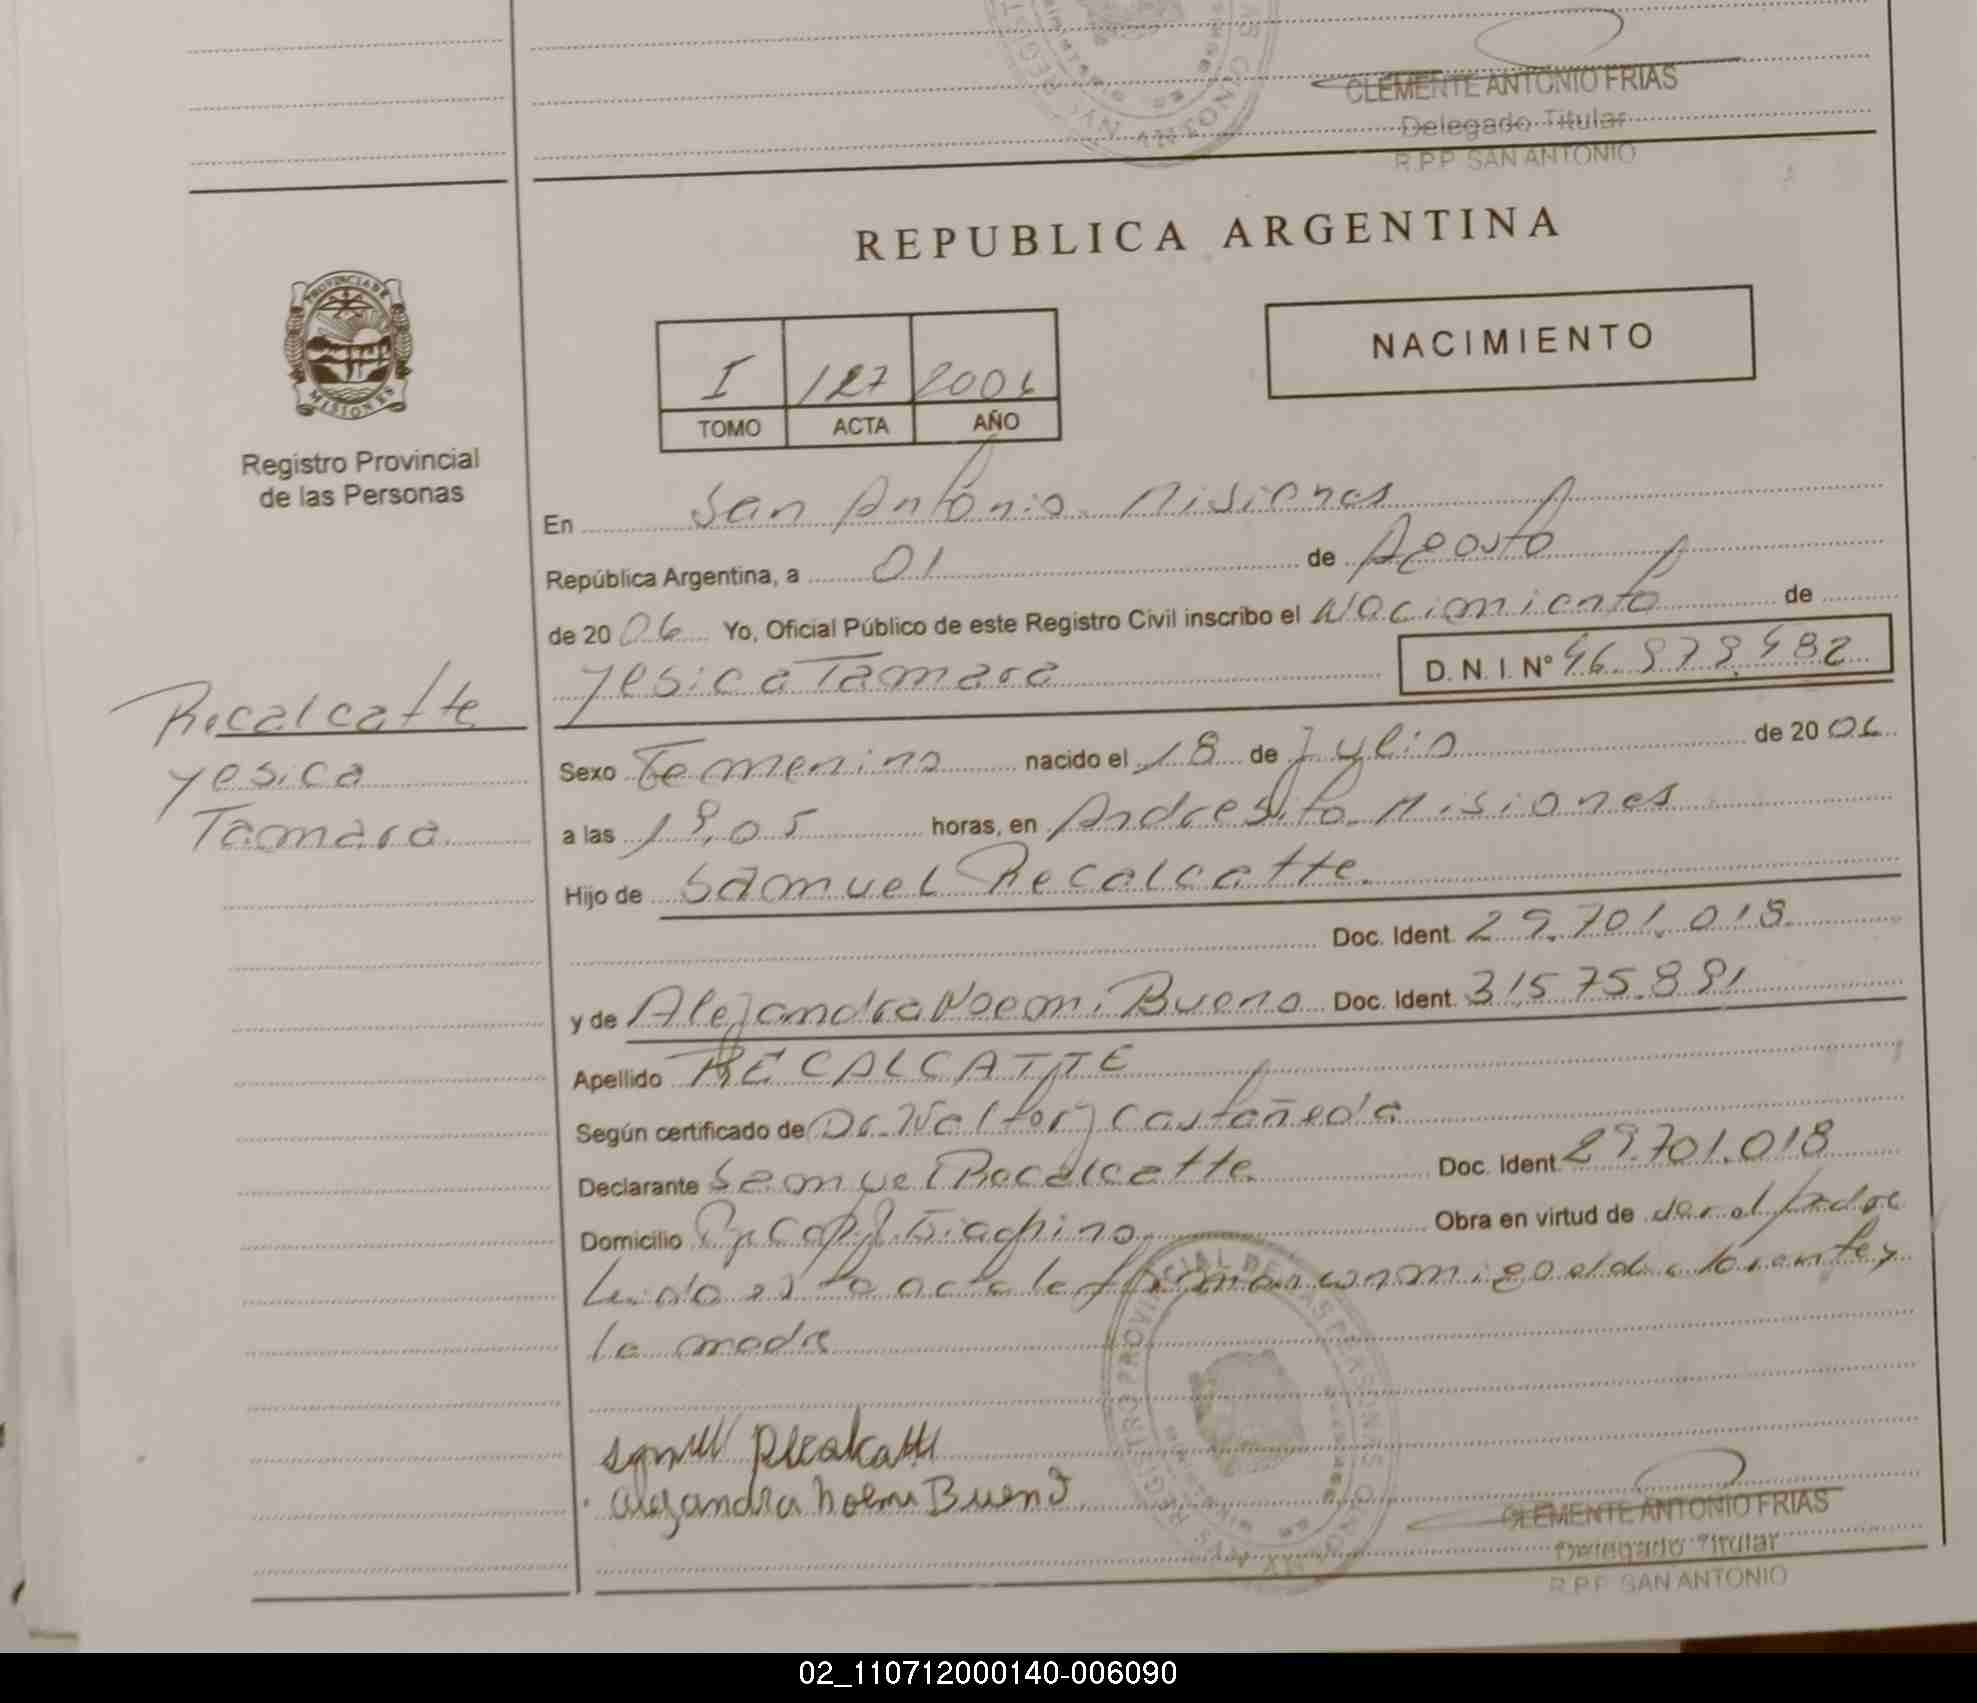 CLEMENTE ANTONIO FRIAS
Delegado Titular
R.P.P. SAN ANTONIO
REPUBLICA ARGENTINA
PROVINCIA DE
MISIONES
Registro Provincial
de las Personas
I 127 2006
TOMO ACTA AÑO
NACIMIENTO
En San Antonio Misiones
República Argentina, a 01 de Agosto
de 20 06 Yo, Oficial Público de este Registro Civil inscribo el Nacimiento de
Yesica Tamara D. N. I. Nº
Recalcatte
Yesica
Tamara
Sexo Femenino nacido el 18 de Julio de 20 06
a las horas, en Andresito Misiones
Hijo de Samuel Recalcatte
Doc. Ident. 29.701.018
y de Alejandra Noemi Bueno Doc. Ident.
Apellido RECALCATTE
Según certificado de Dr. Walter J Castañeda
Declarante Samuel Recalcatte Doc. Ident. 29.701.018
Domicilio Obra en virtud de ser el padre
Leida esta acta la firman conmigo el declarante y
la madre
Samuel Recalcatti
Alejandra Noemi Bueno
CLEMENTE ANTONIO FRIAS
Delegado Titular
R.P.P. SAN ANTONIO
02_110712000140-006090